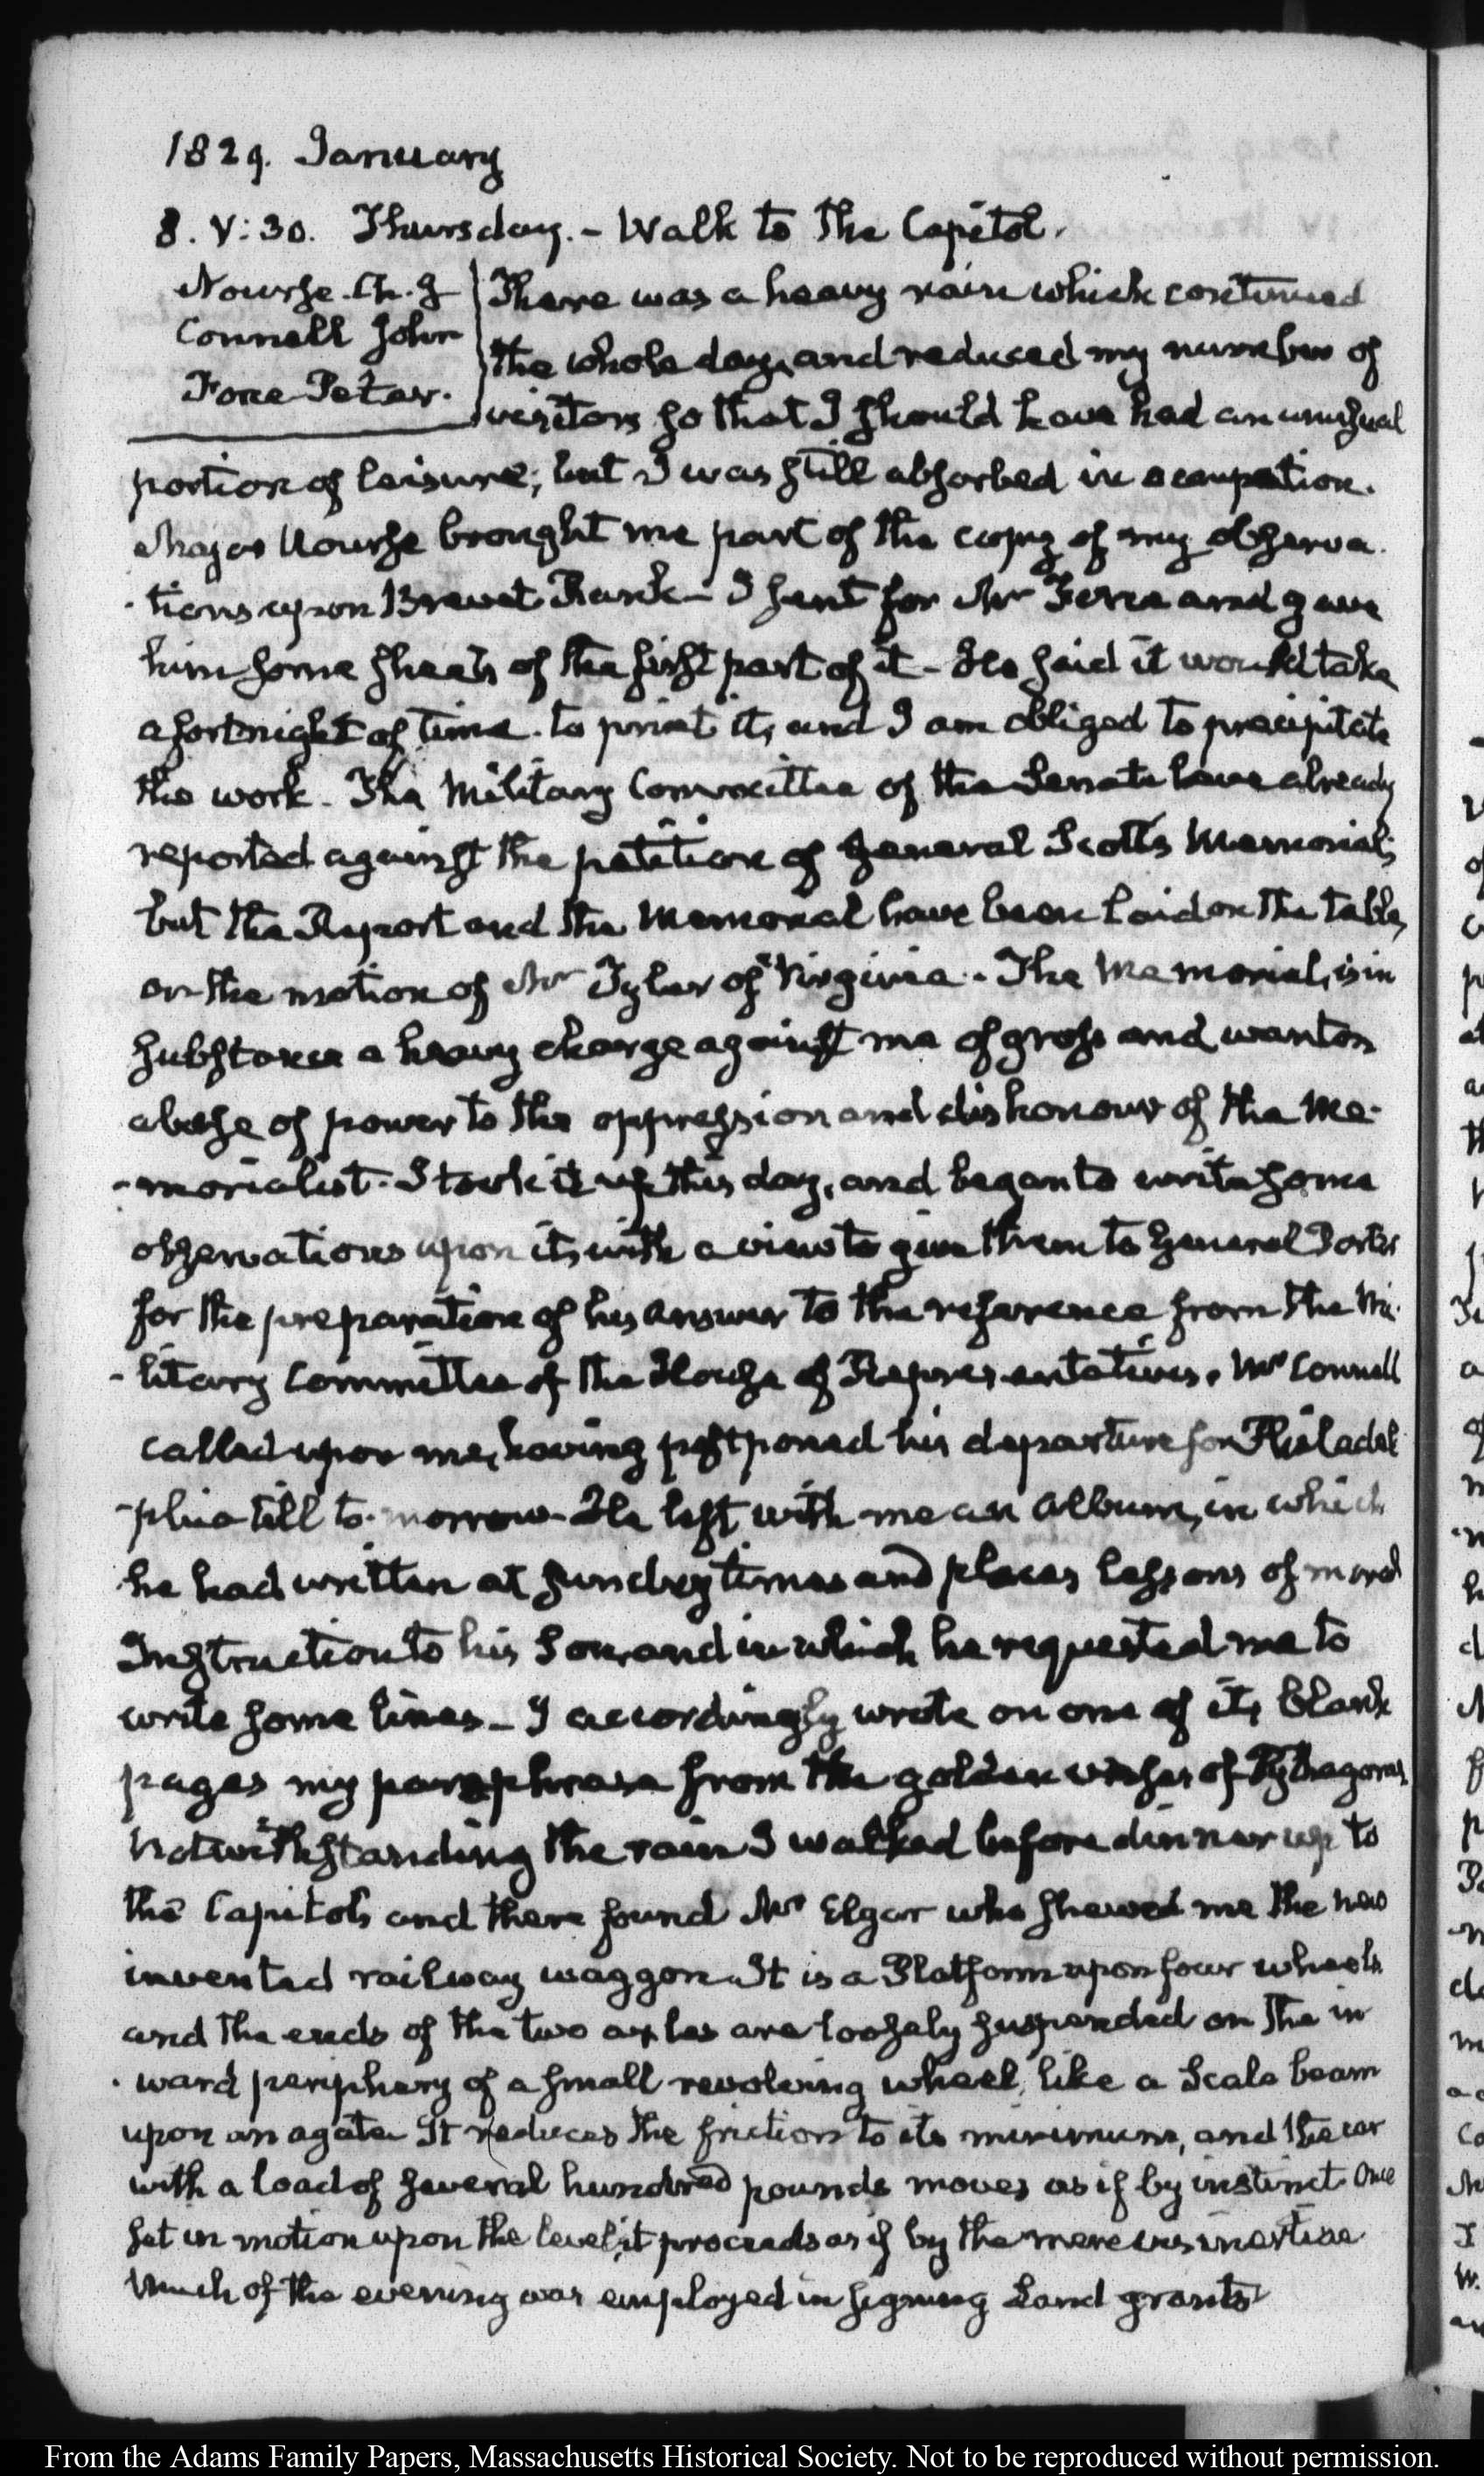 1829. January
8. V:30. Thursday. - Walk to the Capitol.
Nourse. Ch. J
Connell John
Force Peter.
There was a heavy rain which continued
the whole day, and reduced my number of
visitors so that I should have had an unusual
portion of leisure; but I was still absorbed in occupation.
Major Nourse brought me part of the copy of my observa-
-tions upon Brevet Rank - I sent for Mr Force and gave
him some sheets of the first part of it - He said it would take
a fortnight of time. to print it, and I am obliged to precipitate
the work. The Military Committee of the Senate have already
reported against the petition of General Scott's Memorial;
but the Report and the Memorial have been laid on the table,
on the motion of Mr Tyler of Virginia. - The Memorial, is in
substance a heavy charge against me of gross and wanton
abuse of power to the oppression and dishonour of the Me-
-morialist. I took it up this day, and began to write some
observations upon it, with a view to give them to General Porter
for the preparation of his answer to the reference from the Mi-
-litary Committee of the House of Representatives. Mr Connell
called upon me, having postponed his departure for Philadel
-phia till to-morrow - He left with me an Album, in which
he had written at sundry times and places lessons of moral
Instruction to his Son, and in which he requested me to
write some lines - I accordingly wrote on one of its blank
pages my paraphrase from the golden verses of Pythagoras,
Notwithstanding the rain I walked before dinner up to
the Capitol, and there found Mr Elgar who shewed me the new
invented railway waggon. It is a Platform upon four wheels
and the ends of the two axles are loosely suspended on the in
-ward periphery of a small revolving wheel, like a Scale beam
upon an agate. It reduces the friction to its minimum, and the car
with a load of several hundred pounds moves as if by instinct. Once
set in motion upon the level, it proceeds as if by the mere vis inertiae
Much of the evening was employed in signing Land grants
From the Adams Family Papers, Massachusetts Historical Society. Not to be reproduced without permission.